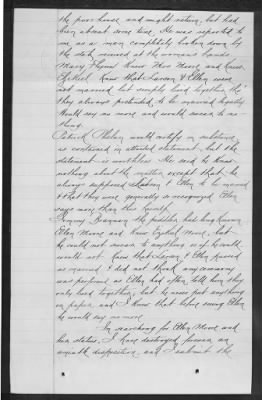 the poor house and might return, but had
been absent some time. He was reported to
me as a man completely broken down by
the
Mary Flynn knew Mrs Moore and knew
that and Ellen were
not married but simply lived together tho'
they always pretended to be married legally.
Would say no more and would swear to no-
thing.
Patrick Phelan would testify in substance
as contained in attached statement, but the
statement is worthless. He said he knew
nothing about the matter except that he
always supposed & Ellen to be married
& that they were generally so recognized. Ellen
says more than he would.
Jimmy Brannan the peddler, has long known
Ellen Moore and knew Moore, but
he could not swear to anything or if he could
would not. Knew that & Ellen passed
as married & did not think any ceremony
was performed as Ellen had often told him they
only lived together, but he never put anything
on paper, and I know that before seeing Ellen
he would say no more.
In searching for Ellen Moore and
her status, I have destroyed
amiable disposition, and I submit the